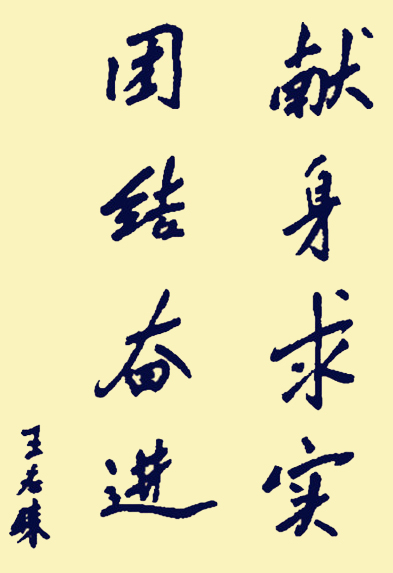 献身求实
团结奋进
王志臻